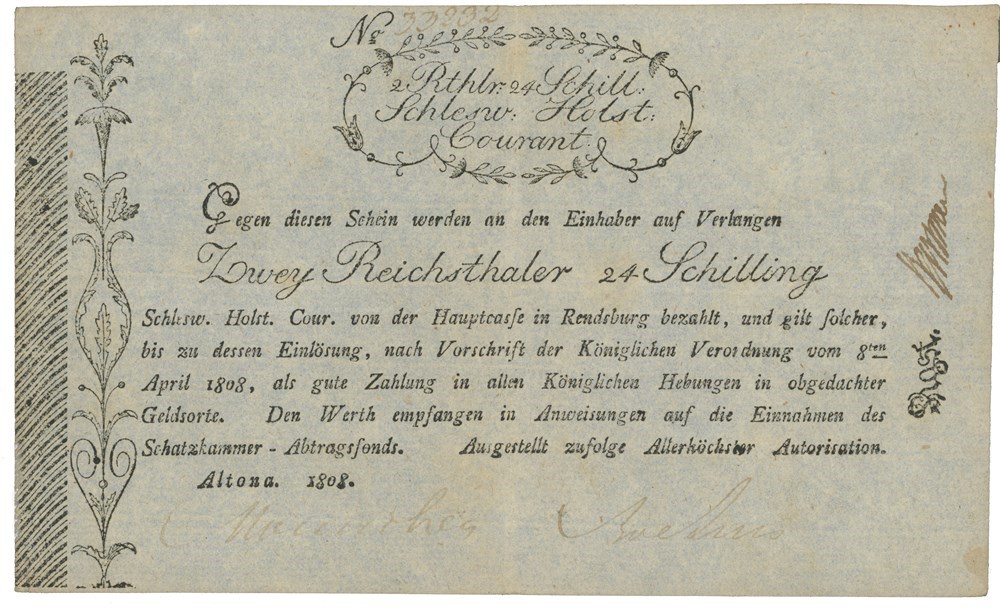 No 33232
2 Rthlr: 24 Schill:
Schlesw: Holst:
Courant.
Gegen diesen Schein werden an den Einhaber auf Verlangen
Zwey Reichsthaler 24 Schilling
Schlesw. Holst. Cour. von der Hauptcasse in Rendsburg bezahlt, und gilt solcher,
bis zu dessen Einlösung, nach Vorschrift der Königlichen Verordnung vom 8ten
April 1808, als gute Zahlung in allen Königlichen Hebungen in obgedachter
Geldsorte. Den Werth empfangen in Anweisungen auf die Einnahmen des
Schatzkammer - Abtragsfonds. Ausgestellt zufolge Allerhöchster Autorisation.
Altona. 1808.